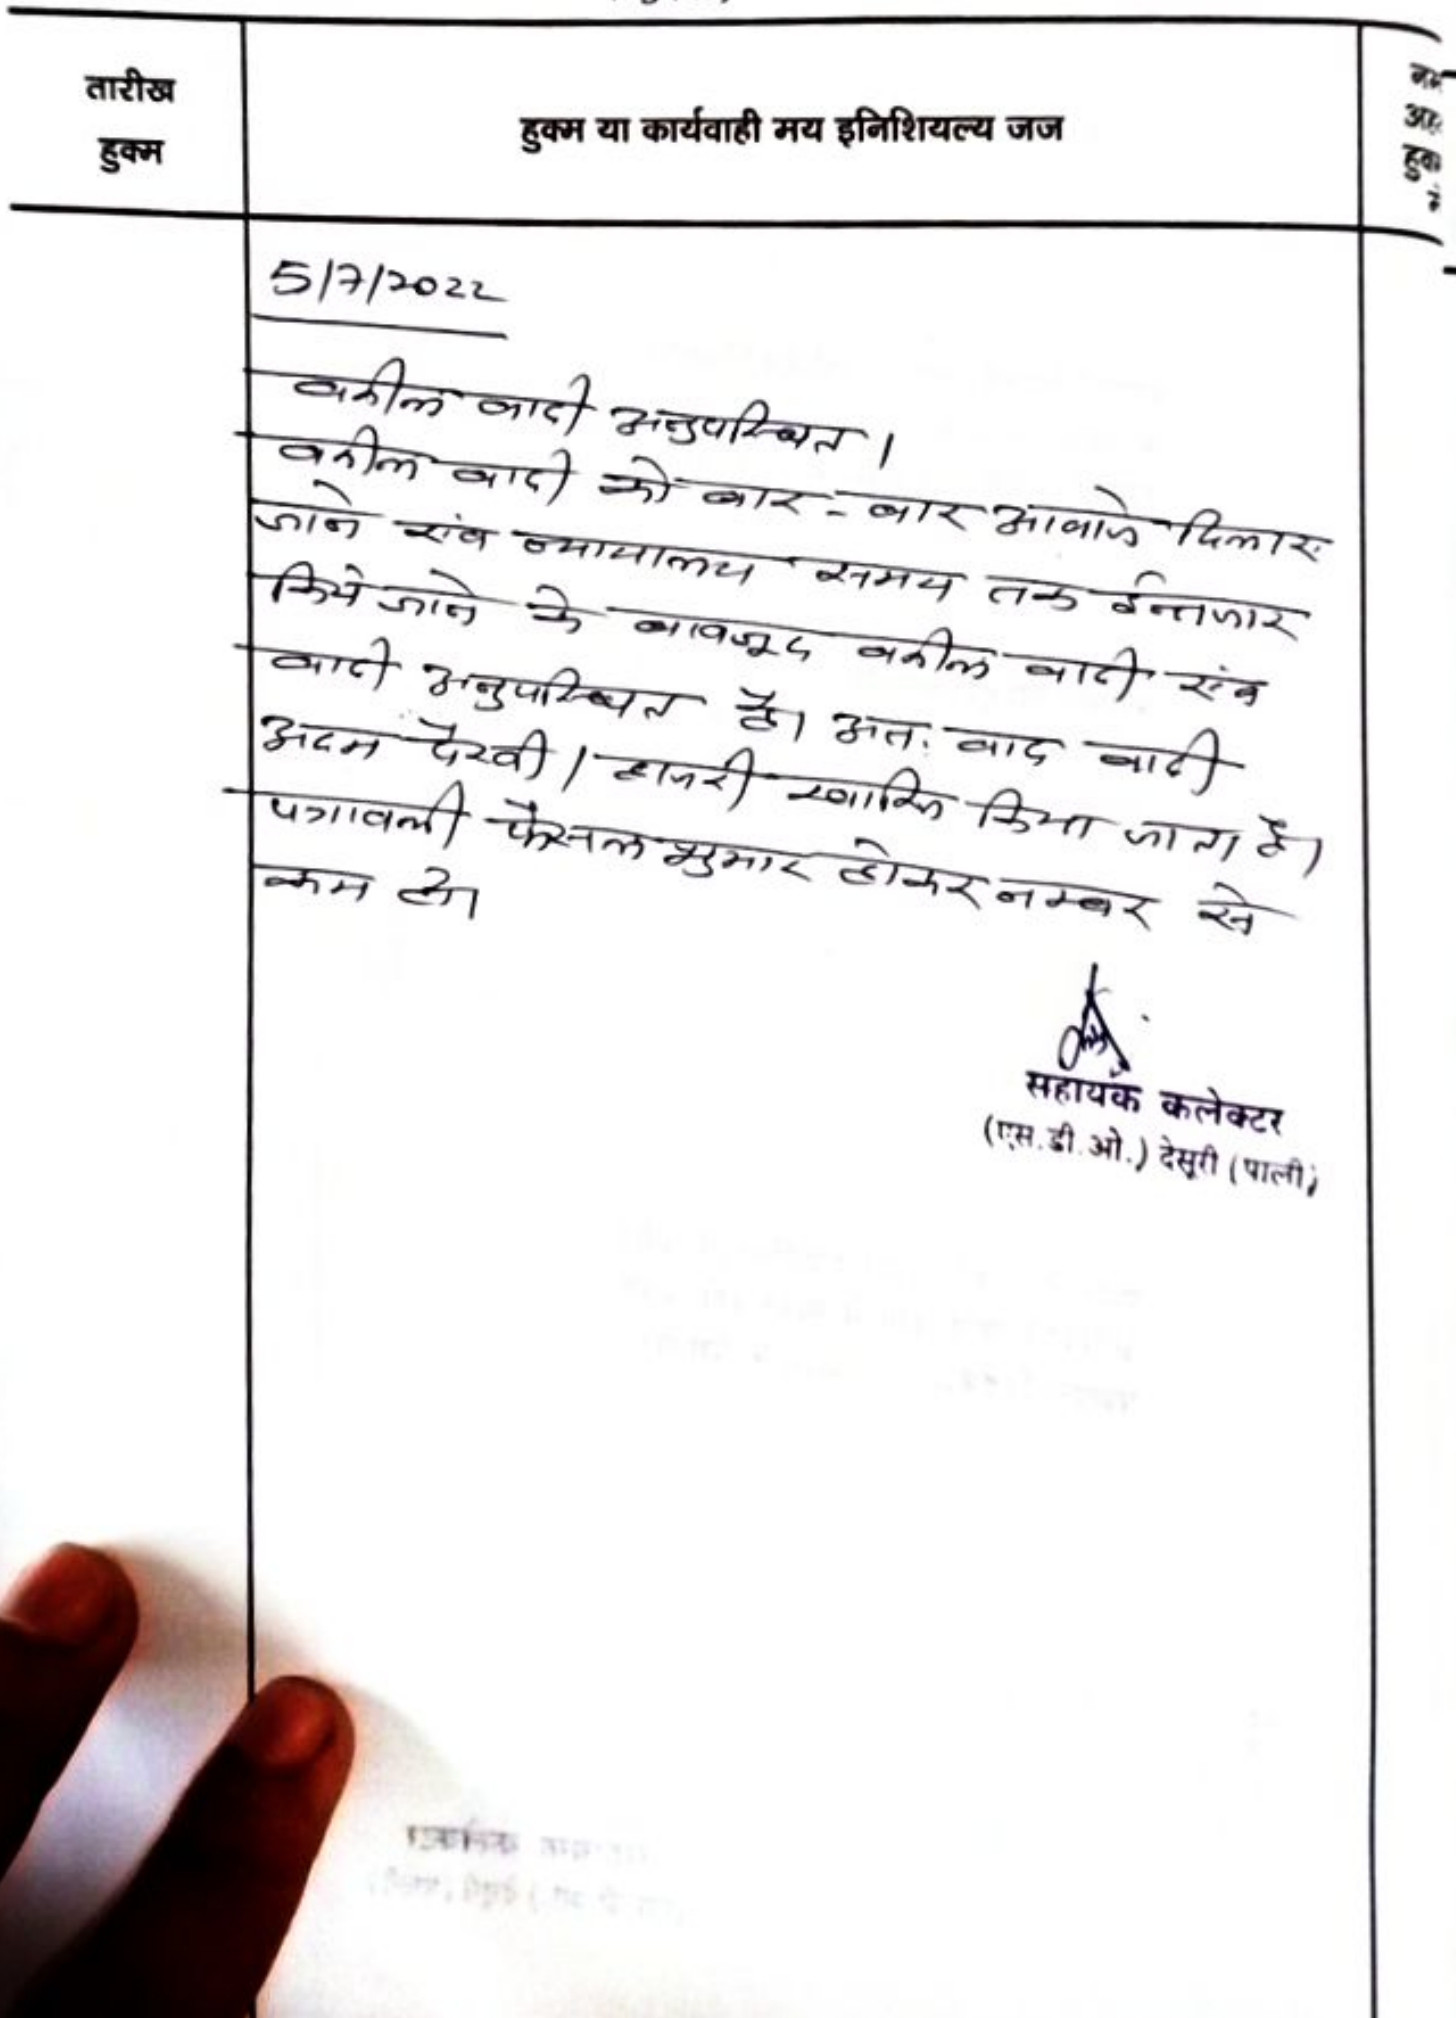 तारीख
हुक्म
हुक्म या कार्यवाही मय इनिशियल्य जज
5/7/2022
वकील वादी अनुपस्थित।
वकील वादी को बार-बार आवाजे दिलाए
जाने एंव न्यायालय समय तक ईन्तजार
किये जाने के बावजूद वकील वादी एंव
वादी अनुपस्थित है। अतः वाद वादी
अदम पैरवी / हाजरी खारिज किया जाता है।
पत्रावली फैसल शुमार होकर नम्बर से
कम हो।
सहायक कलेक्टर
(एस.डी.ओ.) देसूरी (पाली)